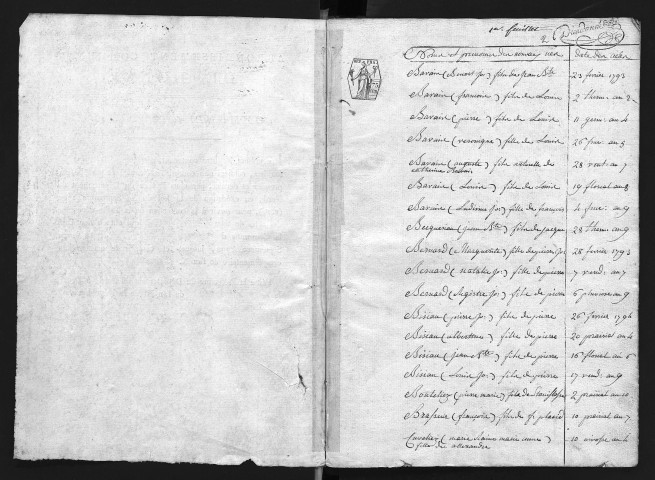 1er feuillet
Noms et prénoms des nouveaux nés date des actes
Bavaix (Benoit Jh) fils de Jean Bte 23 fevrier 1793
Bavaix (françoise) fille de Louis 2 therm. an 2
Bavaix (pierre) fils de Louis 11 germ. an 4
Bavaix (veronique) fille de Louis an 8
Bavaix (auguste) fils naturelle de 28 vent. an 7
catherine Bavaix
Bavaix (Louise) fille de Louis 19 floreal an 8
Bavaix (Ludivine Jh) fille de françois an 9
Becquereau (jean Bte) fils de jacque 28 therm. an 9
Bernard (Marguerite) fille de pierre Jh 28 fevrier 1793
Bernard (Natalie Jh) fille de pierre 7 vend. an 7
Bernard (Jh) fils de pierre 6 pluviose an 9
Bisiau (pierre Jh) fils de pierre 26 fevrier 1794
Bisiau (albertine) fille de pierre 20 prairial an 4
Bisiau (jean Bte) fils de pierre 16 floreal an 6
Bisiau (Louis Jh) fils de pierre 17 vend. an 9
(pierre marie) fils de Stanislas 2 prairial an 10
Brasseur (françois) fils de f. placide 10 prairial an 7
Cuvelier (marie marie anne) 10 nivose an 4
fille de alexandre